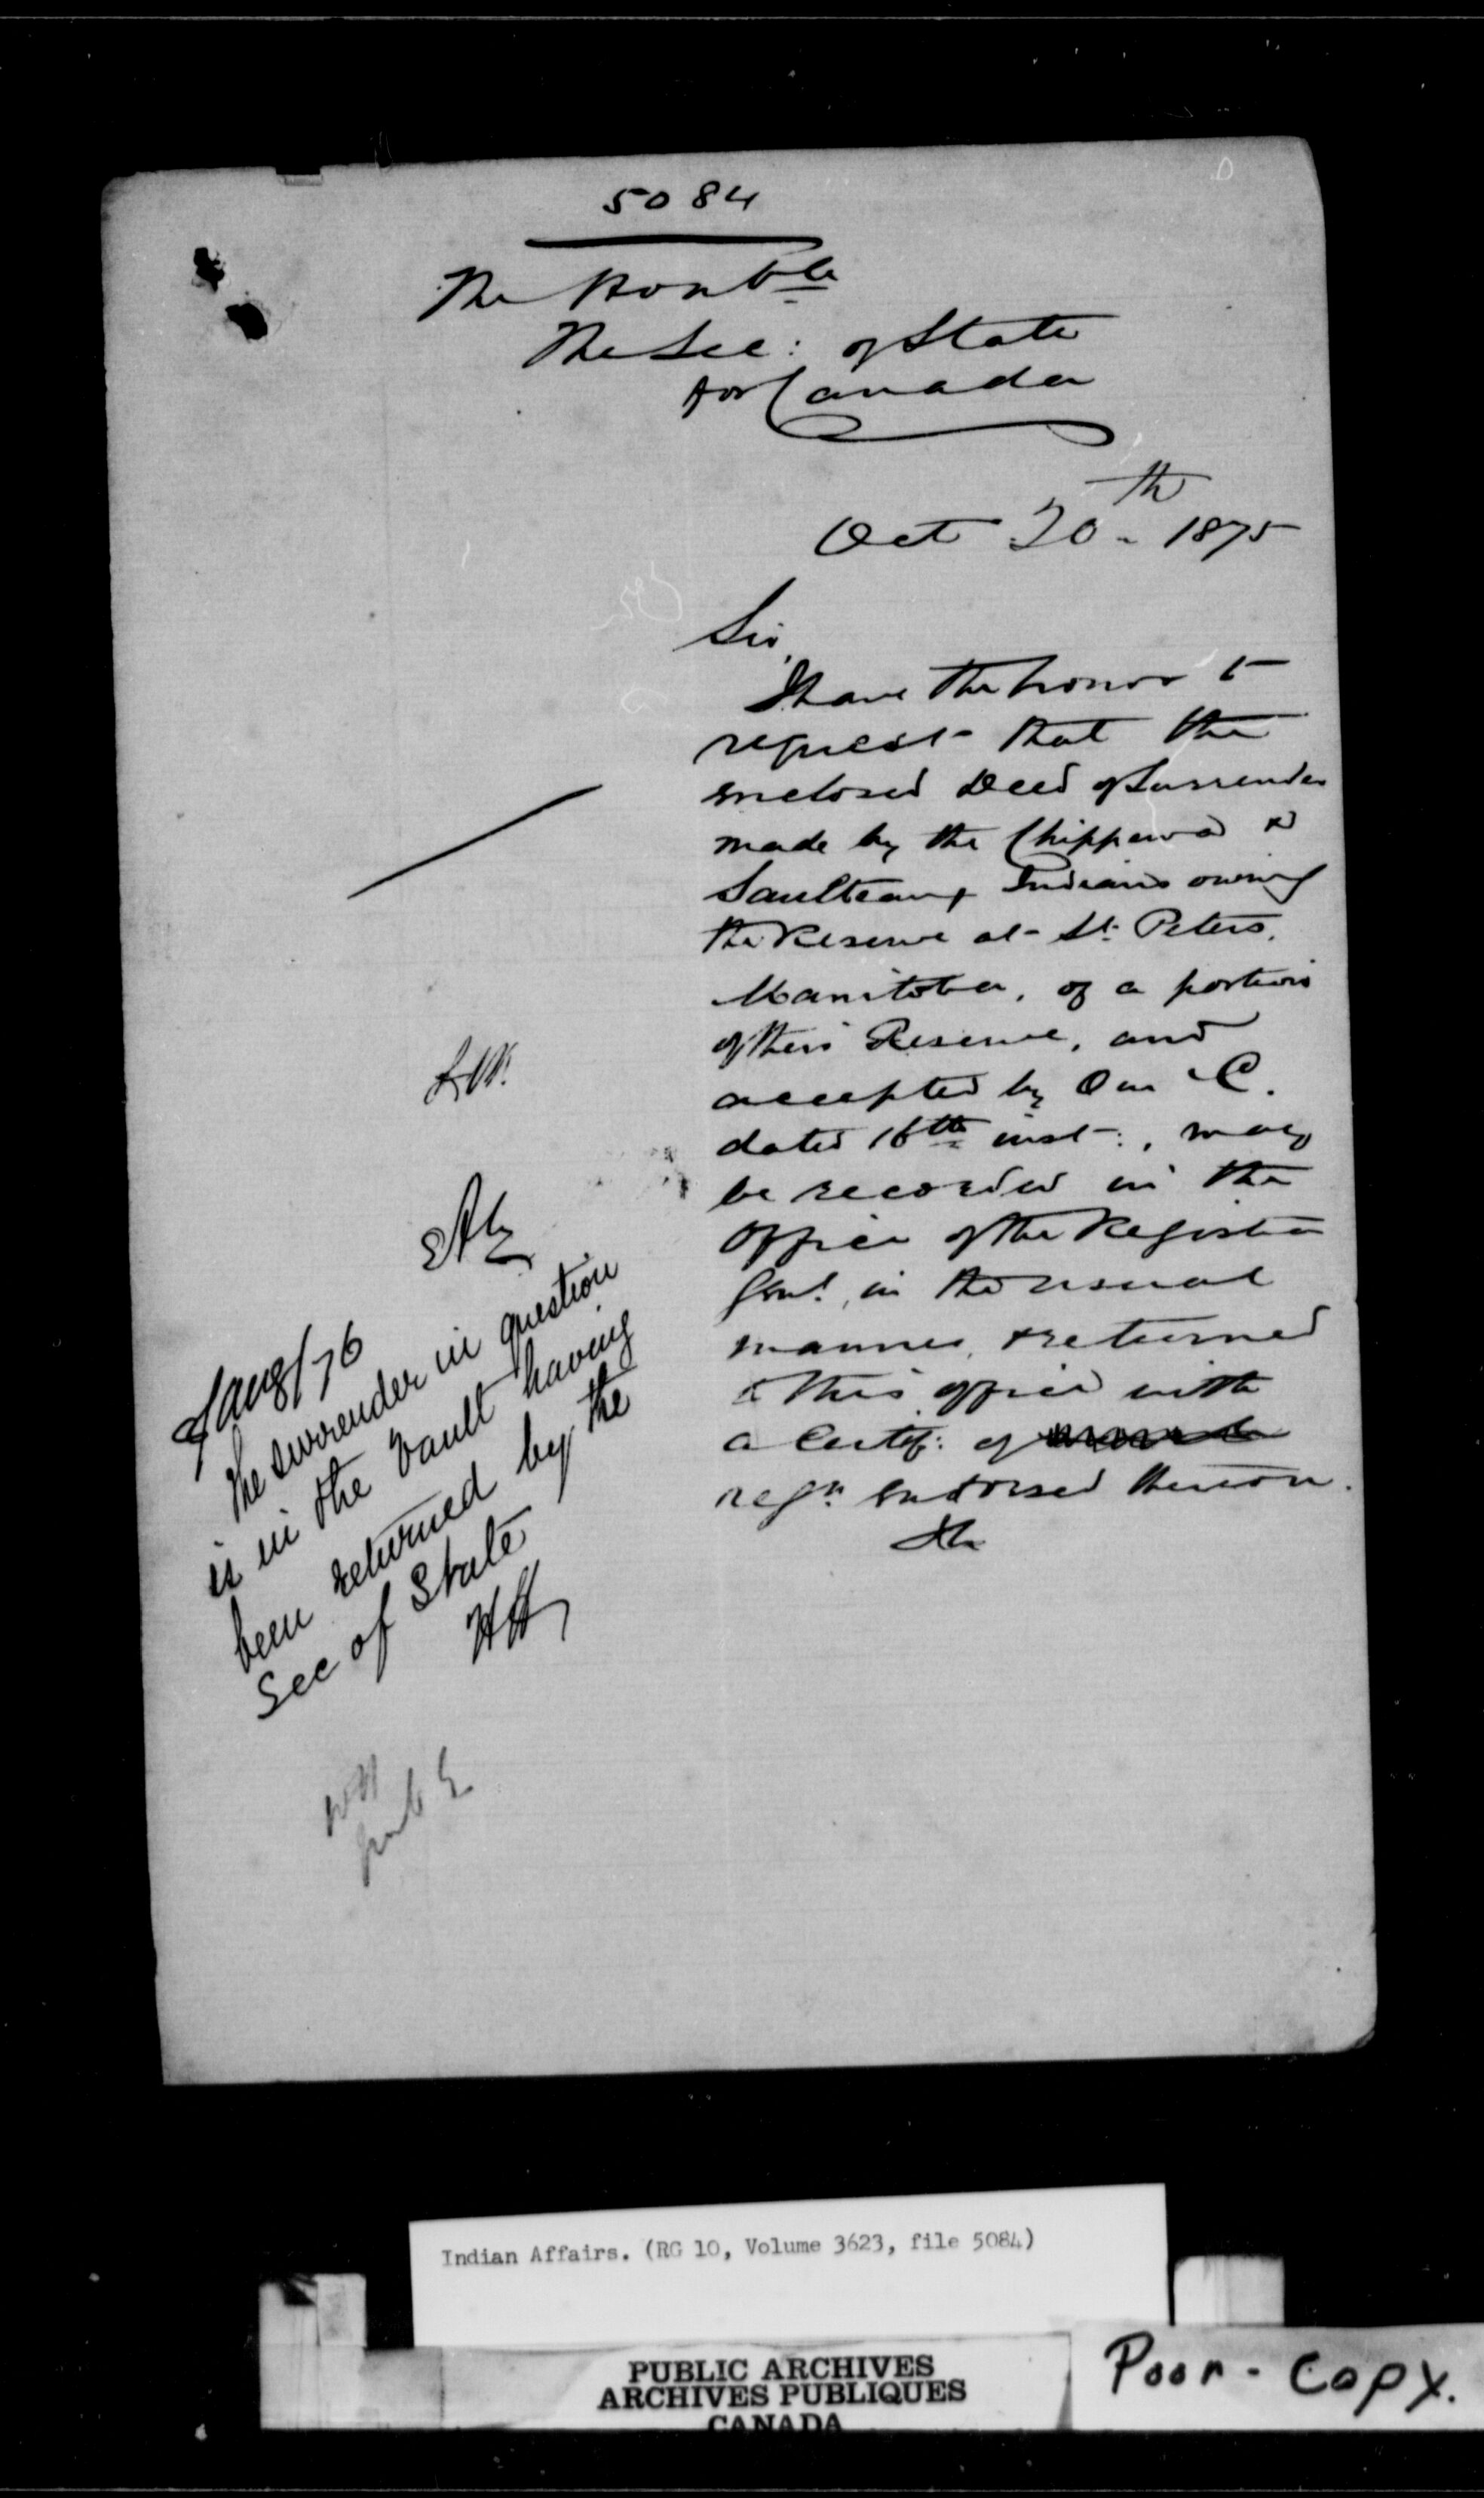 5084
The Honble
The Sec: of State
for Canada
Oct 20th 1875
Sir,
I have the honor to
request that the
enclosed Deed of Surrender
made by the Chippewa &
Saulteaux Indians owning
the Reserve at St. Peters,
Manitoba, of a portion
of their Reserve, and
accepted by O in C.
dated 16th inst:, may
be recorded in the
Office of the Registrar
Genl, in the usual
manner, & returned
to this office with
a Certif: of
regn endorsed thereon.
Jany 8/76
The surrender in question
is in the vault having
been returned by the
Sec of State
Indian Affairs. (RG 10, Volume 3623, file 5084)
PUBLIC ARCHIVES
ARCHIVES PUBLIQUES
CANADA
Poor-Copy.